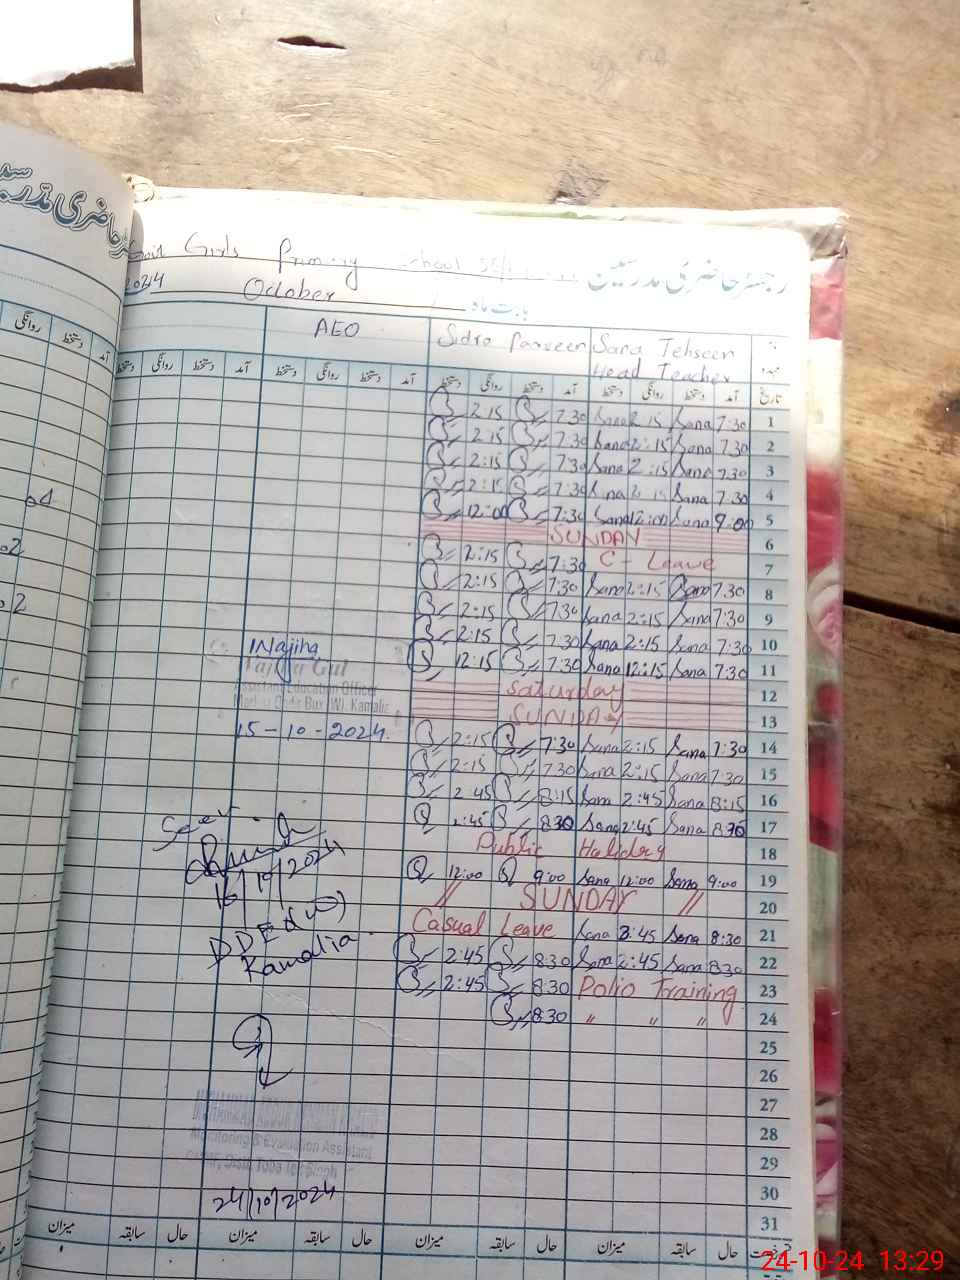 رجسٹر حاضری مدرسین
Govt Girls Primary School
2024 October بابت ماہ
AEO Sidra Parveen Sana Tehseen
Head Teacher
دستخط روانگی دستخط آمد دستخط روانگی دستخط آمد دستخط روانگی دستخط آمد تاریخ
2:15 7:30 Sana 2:15 Sana 7:30 1
2:15 7:30 Sana 2:15 Sana 7:30 2
2:15 7:30 Sana 2:15 Sana 7:30 3
2:15 7:30 Sana 2:15 Sana 7:30 4
12:00 7:30 Sana 12:00 Sana 9:00 5
SUNDAY 6
2:15 7:30 C - Leave 7
2:15 7:30 Sana 2:15 Sana 7:30 8
2:15 7:30 Sana 2:15 Sana 7:30 9
2:15 7:30 Sana 2:15 Sana 7:30 10
12:15 7:30 Sana 12:15 Sana 7:30 11
Saturday 12
SUNDAY 13
2:15 7:30 Sana 2:15 Sana 7:30 14
2:15 7:30 Sana 2:15 Sana 7:30 15
2:45 8:15 Sana 2:45 Sana 8:15 16
2:45 8:30 Sana 2:45 Sana 8:30 17
Public Holiday 18
12:00 9:00 Sana 12:00 Sana 9:00 19
// SUNDAY // 20
Casual Leave Sana 2:45 Sana 8:30 21
2:45 8:30 Sana 2:45 Sana 8:30 22
2:45 8:30 Polio Training 23
8:30 " " " 24
25
26
27
28
29
30
31
Najiha
Gul
Assistant Education Officer
(W), Kamalia
15-10-2024
Seen
16/10/2024
DDEO (W)
Kamalia
Monitoring & Evaluation Assistant
24/10/2024
میزان سابقہ حال میزان سابقہ حال میزان سابقہ حال میزان سابقہ حال
روانگی دستخط آمد
24-10-24 13:29